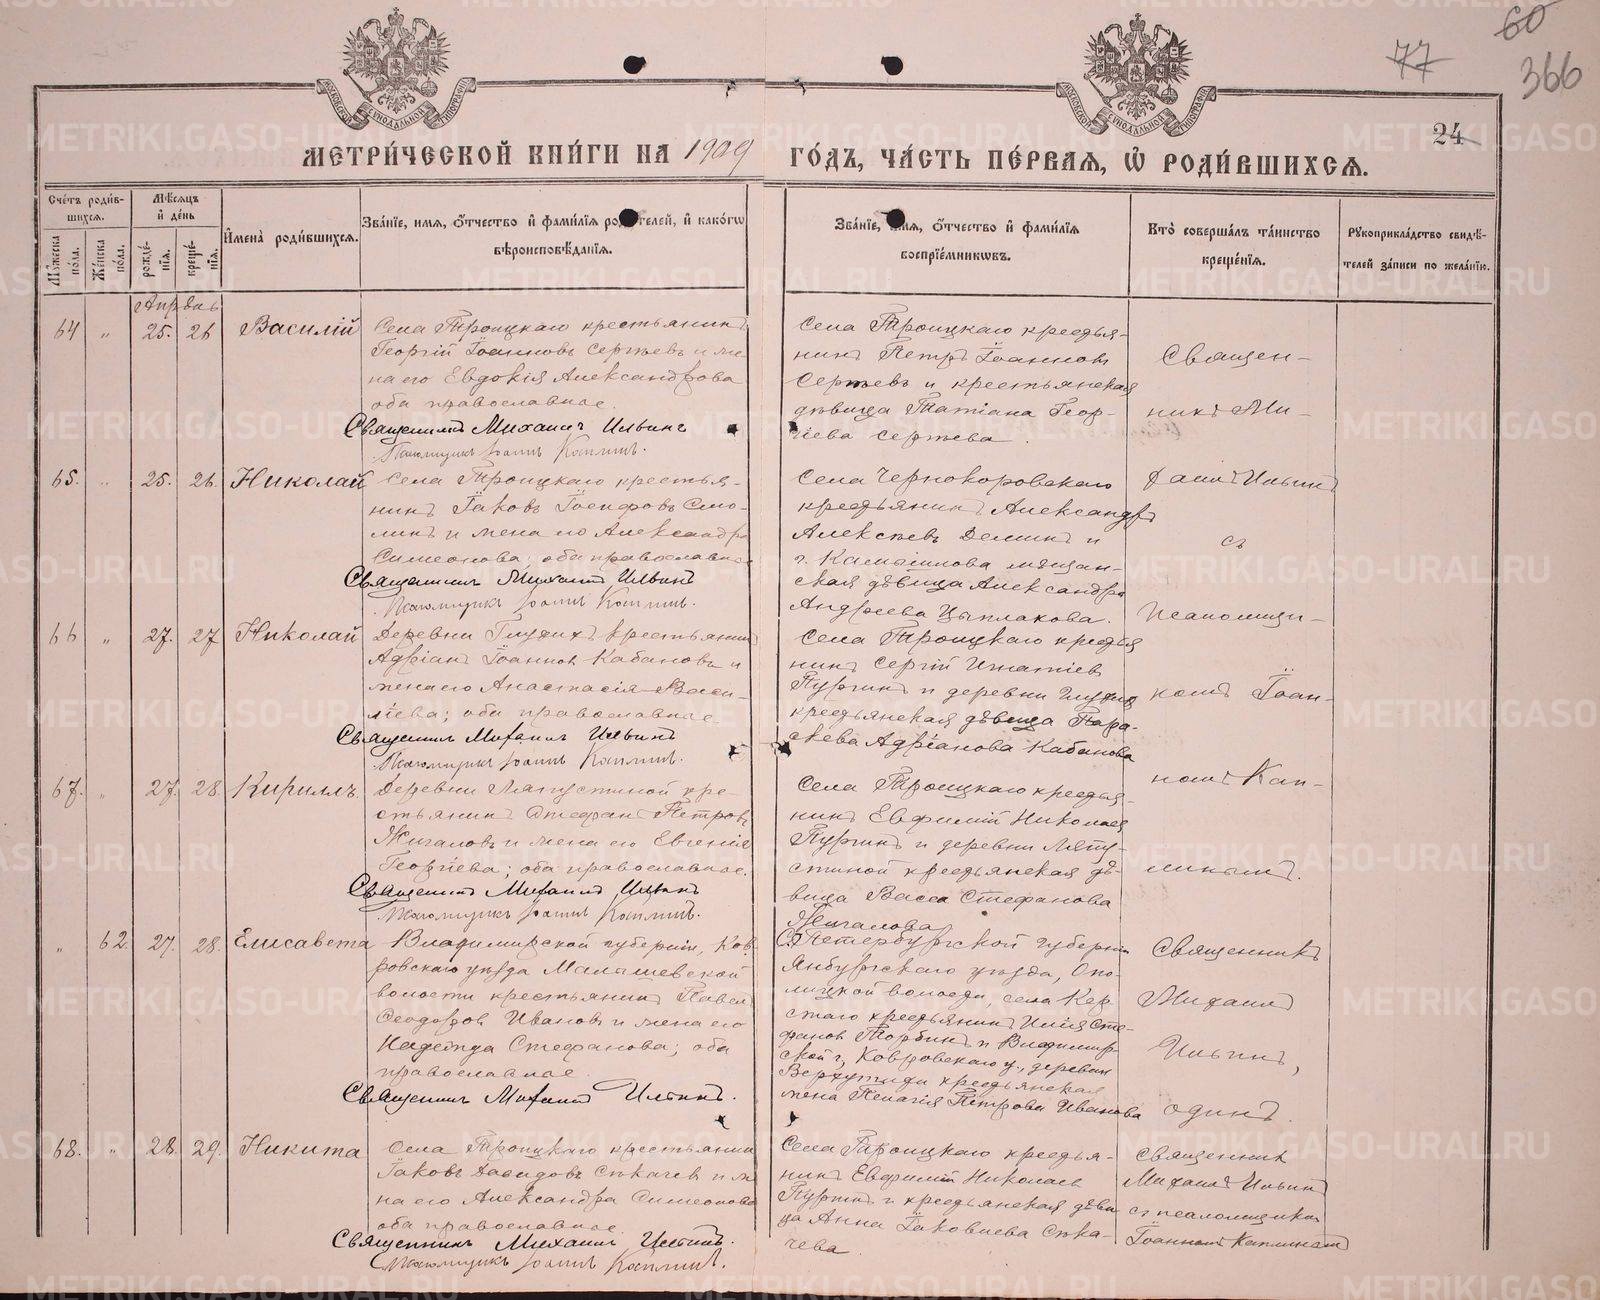 60
77
366
24
МЕТРИЧЕСКОЙ КНИГИ НА 1909 ГОДЪ, ЧАСТЬ ПЕРВАЯ, Ѿ РОДИВШИХСЯ.
Счетъ родив-
шихся.
Мужеска пола.
Женска пола.
Мѣсяцъ
и день
рожде-
нія.
креще-
нія.
Имена родившихся.
Званіе, имя, отчество и фамилія родителей, и какогѡ
вѣроисповѣданія.
Званіе, имя, отчество и фамилія
воспріемникѡвъ.
Кто совершалъ таинство
крещенія.
Рукоприкладство свидѣ-
телей записи по желанію.
Апрѣль
64 " 25. 26 Василій
Села Троицкаго крестьянинъ
Георгій Іоанновъ Сергѣевъ и же-
на его Евдокія Александрова
оба православные.
Священникъ Михаилъ Ильинъ
Псаломщикъ Іоаннъ Каплинъ.
Села Троицкаго крестья-
нинъ Петръ Іоанновъ
Сергѣевъ и крестьянская
дѣвица Татіана Геор-
гіева Сергѣева.
Священ-
никъ Ми-
65. " 25. 26. Николай
Села Троицкаго крестья-
нинъ Іаковъ Іосифовъ Смо-
линъ и жена его Александра
Симеонова; оба православные
Священникъ Михаилъ Ильинъ
Псаломщикъ Іоаннъ Каплинъ.
Села Чернокоровскаго
крестьянинъ Александръ
Алексѣевъ Деминъ и
г. Камышлова мѣщан-
ская дѣвица Александра
Андреева Цыплакова.
хаилъ Ильинъ
съ
Псаломщи-
66 " 27. 27 Николай
Деревни Глухихъ крестьянинъ
Адріанъ Іоанновъ Кабановъ и
жена его Анастасія Васи-
ліева; оба православные.
Священникъ Михаилъ Ильинъ
Псаломщикъ Іоаннъ Каплинъ.
Села Троицкаго крестья
нинъ Сергій Игнатіевъ
Пургинъ и деревни Глухихъ
крестьянская дѣвица Пара-
скева Адріанова Кабанова
комъ Іоан-
67. " 27. 28. Кириллъ.
Деревни Ляпустиной кре-
стьянинъ Стефанъ Петровъ
Жигаловъ и жена его Евгенія
Георгіева; оба православные.
Священникъ Михаилъ Ильинъ
Псаломщикъ Іоаннъ Каплинъ.
Села Троицкаго крестья-
нинъ Евфимій Николаевъ
Пургинъ и деревни Ляпу-
стиной крестьянская дѣ-
вица Васса Стефанова
Жигалова
номъ Кап-
линымъ.
" 62. 27. 28. Елисавета
Владимирской губерніи, Ков-
ровскаго уѣзда Малышевской
волости крестьянинъ Павелъ
Ѳеодоровъ Ивановъ и жена его
Надежда Стефанова; оба
православные.
Священникъ Михаилъ Ильинъ.
С.Петербургской губерніи
Ямбургскаго уѣзда, Опо-
лицкой волости, села Кер-
стаго крестьянинъ Илія Сте-
фановъ Торбинъ и Владимир-
ской г., Ковровскаго у., деревни
крестьянская
жена Пелагія Петрова Иванова
Священникъ
Михаилъ
Ильинъ,
одинъ.
68. " 28. 29. Никита
Села Троицкаго крестьянинъ
Іаковъ Давидовъ Сткачевъ и же
на его Александра Симеонова
оба православные
Священникъ Михаилъ Ильинъ.
Псаломщикъ Іоаннъ Каплинъ.
Села Троицкаго крестья-
нинъ Евфимій Николаевъ
Пургинъ и крестьянская дѣви
ца Анна Іаковлева Стка-
чева.
Священникъ
Михаилъ Ильинъ
съ псаломщикомъ
Іоанномъ Каплинымъ
METRIKI.GASO-URAL.RU